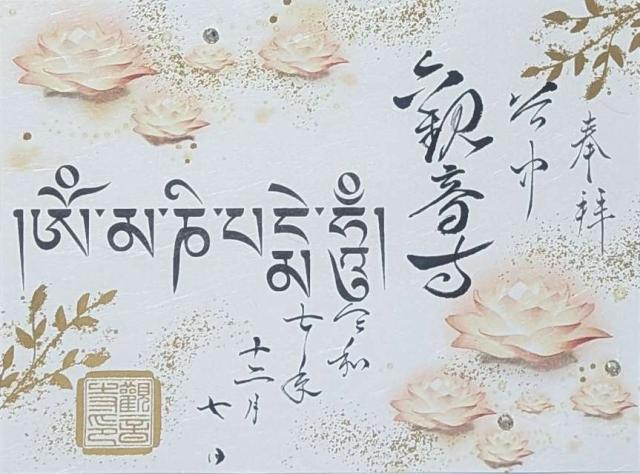 奉拝
谷中
六観音寺
།ཨོཾ་མ་ཎི་པ་དྨེ་ཧཱུྃ།
令和
七年
十二月
七日
觀音
寺印